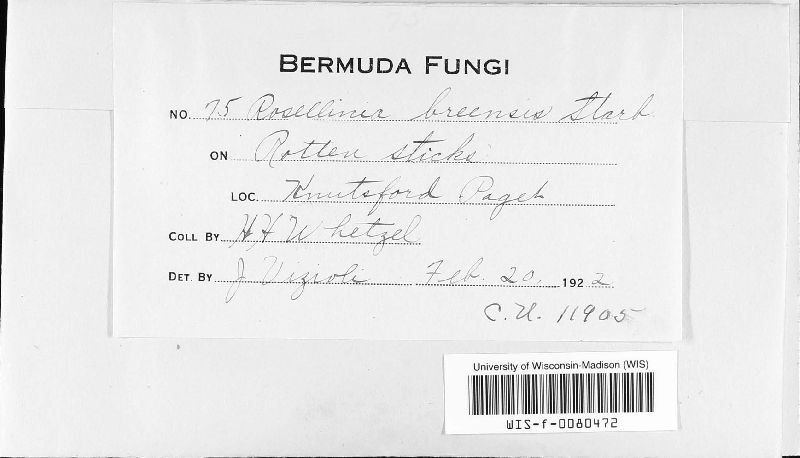 BERMUDA FUNGI
NO. 75 Rosellinia breensis Starb.
ON Rotten sticks
LOC. Knutsford Paget
COLL BY H H Whetzel
DET. BY J Vizioli Feb. 20, 1922
C.U. 11905
University of Wisconsin-Madison (WIS)
WIS-f-0080472